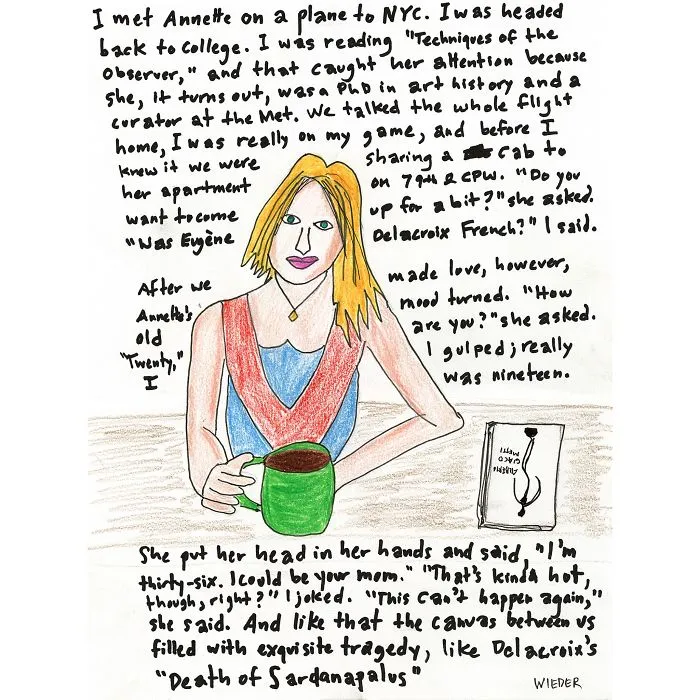 I met Annette on a plane to NYC. I was headed
back to college. I was reading "Techniques of the
Observer," and that caught her attention because
she, it turns out, was a PhD in art history and a
curator at the Met. We talked the whole flight
home, I was really on my game, and before I
knew it we were sharing a cab to
her apartment on 79th & CPW. "Do you
want to come up for a bit?" she asked.
"Was Eugène Delacroix French?" I said.
After we made love, however,
Annette's mood turned. "How
old are you?" she asked.
"Twenty," I gulped; really
I was nineteen.
ALBERTO
GIACO
METTI
She put her head in her hands and said, "I'm
thirty-six. I could be your mom." "That's kinda hot,
though, right?" I joked. "This can't happen again,"
she said. And like that the canvas between us
filled with exquisite tragedy, like Delacroix's
"Death of Sardanapalus"
WIEDER